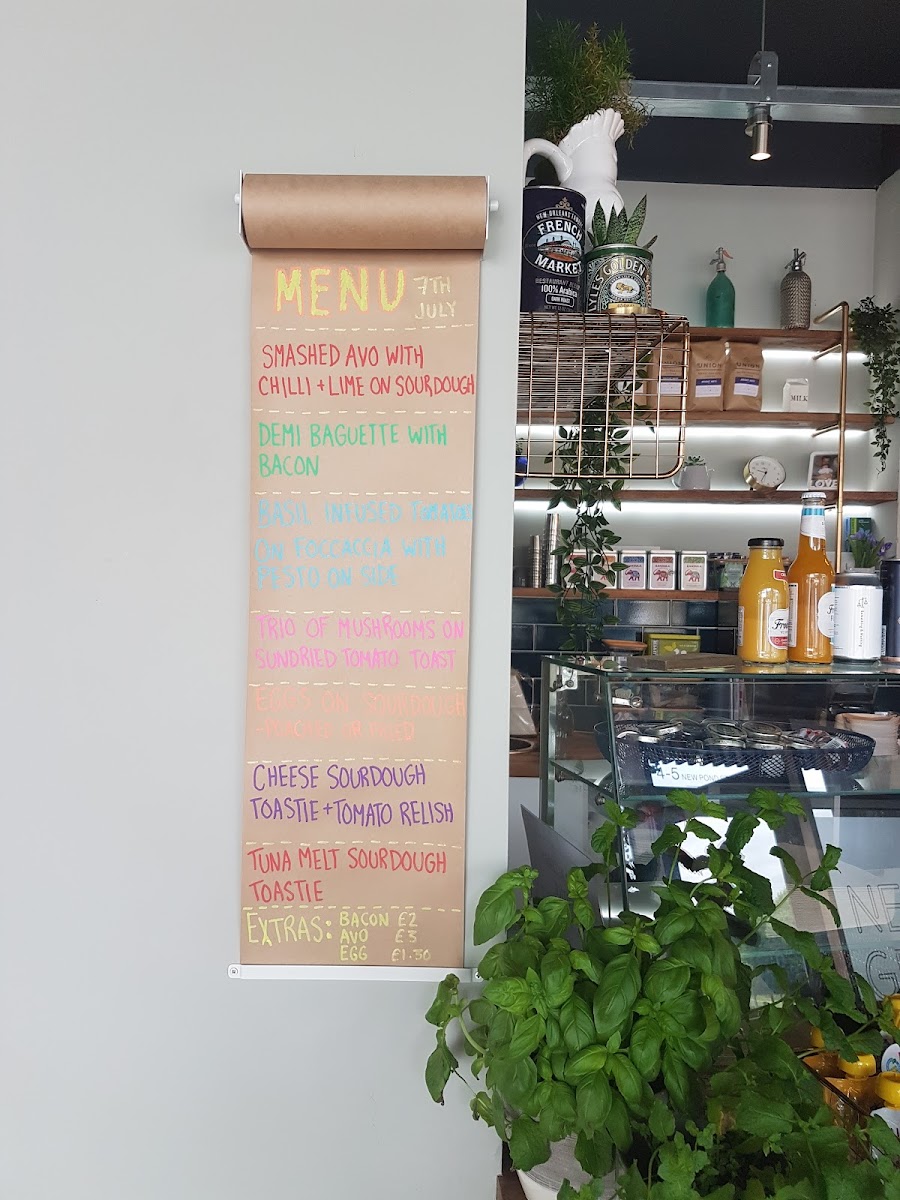 MENU 7TH
JULY
SMASHED AVO WITH
CHILLI + LIME ON SOURDOUGH
DEMI BAGUETTE WITH
BACON
BASIL INFUSED TOMATOES
ON FOCCACCIA WITH
PESTO ON SIDE
TRIO OF MUSHROOMS ON
SUNDRIED TOMATO TOAST
EGGS ON SOURDOUGH
-POACHED OR FRIED
CHEESE SOURDOUGH
TOASTIE + TOMATO RELISH
TUNA MELT SOURDOUGH
TOASTIE
EXTRAS: BACON £2
AVO £3
EGG £1.50
NEW ORLEANS FAMOUS
FRENCH
MARKET
RESTAURANT
100% Arabica
DARK ROAST
LYLE'S GOLDEN
UNION
UNION
MILK
LOVE
4-5 NEW POND
NE
G